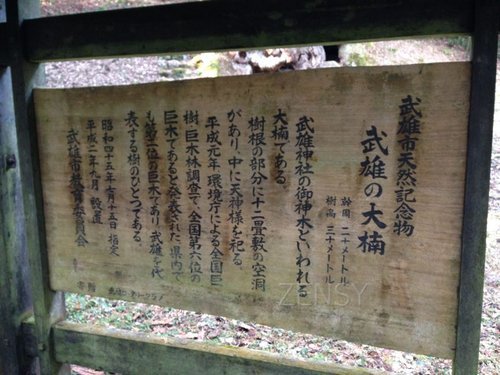 武雄市天然記念物
武雄の大楠
幹周 二十メートル
樹高 三十メートル
武雄神社の御神木といわれる
大楠である。
樹根の部分に十二畳敷の空洞
があり、中に天神様を祀る。
平成元年環境庁による全国巨
樹・巨木林調査で、全国第六位の
巨木であると発表された。県内で
も第二位の巨木であり、武雄を代
表する樹のひとつである。
昭和四十五年七月十五日 指定
平成二年九月 設置
武雄市教育委員会
ZENSY